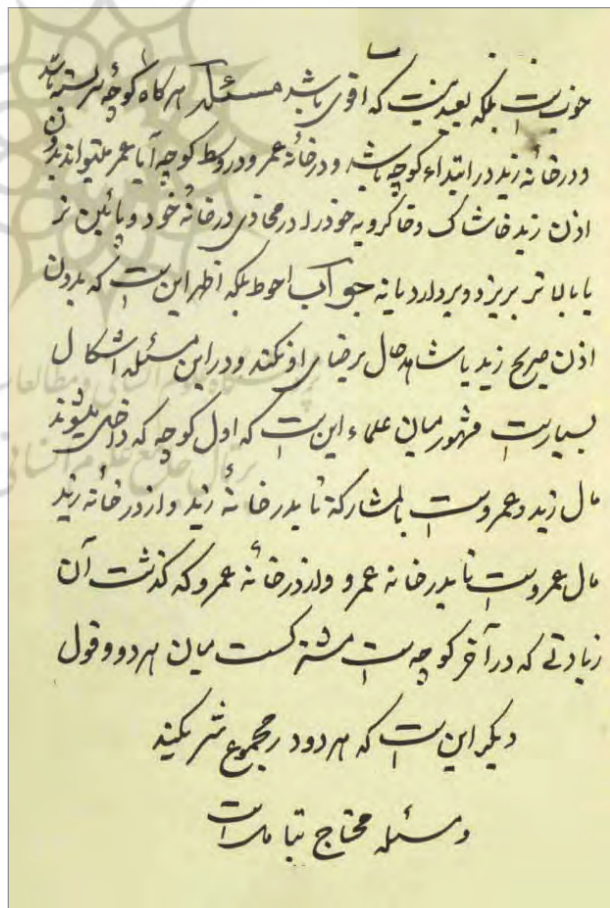 خوبست بلکه بعید نیست که اقوی باشد مسئله هر کاه کوچهٔ سر بسته باشد
و در خانهٔ زید در ابتداء کوچه باشد و در خانهٔ عمرو در وسط کوچه آیا عمر میتواند بدون
اذن زید خاشاک و خاکروبه خود را در محاذی در خانهٔ خود و پائین تر
یا بالا تر بریزد و بردارد یا نه جواب احوط بلکه اظهر این است که بدون
اذن صریح زید یا شاهد حال برضای او نکند و در این مسئله اشکال
بسیار است مشهور میان علماء این است که اول کوچه که داخل میشوند
مال زید و عمرو است بالمشارکة تا بدر خانهٔ زید و از در خانهٔ زید
مال عمرو است تا بدر خانه عمرو و از در خانهٔ عمرو که گذشت آن
زیادتی که در آخر کوچه است مشترکست میان هر دو و قول
دیکر این است که هر دو در مجموع شریکند
و مسئله محتاج بتامل است